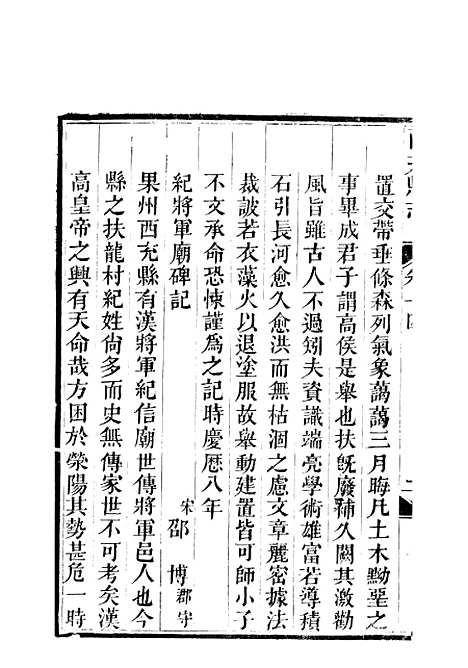 置交帶垂條森列氣象藹藹三月晦凡土木黝堊之
事畢成君子謂高侯是舉也扶旣廢補久闕其激勸
風旨雖古人不過矧夫資識端亮學術雄富若導積
石引長河愈久愈洪而無枯涸之慮文章麗密據法
裁詖若衣藻火以退塗服故舉動建置皆可師小子
不文承命恐悚謹為之記時慶厯八年
紀將軍廟碑記
宋邵博郡守
果州西充縣有漢將軍紀信廟世傳將軍邑人也今
縣之扶龍村紀姓尙多而史無傳家世不可考矣漢
高皇帝之興有天命哉方困於滎陽其勢甚危一時